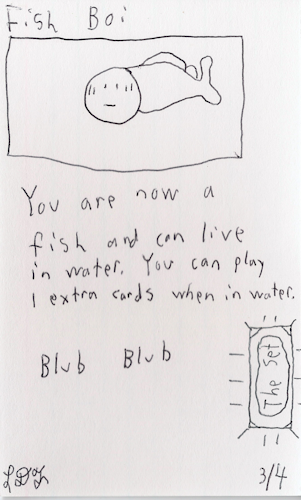 Fish Boi
You are now a
fish and can live
in water. You can play
1 extra cards when in water.
Blub Blub
The Set
3/4